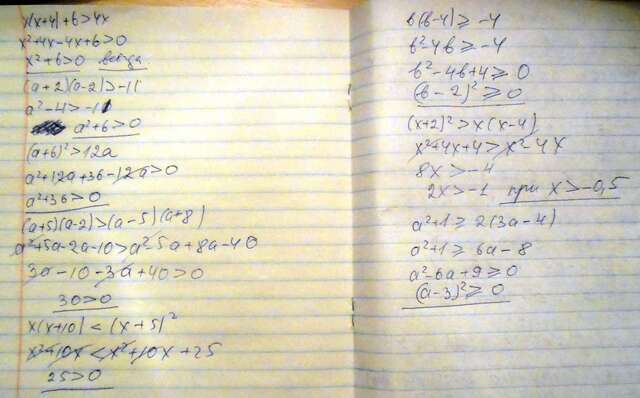 x(x+4)+6>4x
x²+4x-4x+6>0
x²+6>0 всегда
(a+2)(a-2)>-11
a²-4>-11
a²+6>0
(a+6)²>12a
a²+12a+36-12a>0
a²+36>0
(a+5)(a-2)>(a-5)(a+8)
a²+5a-2a-10>a²-5a+8a-40
3a-10-3a+40>0
30>0
x(x+10)<(x+5)²
x²+10x<x²+10x+25
25>0
b(b-4)≥-4
b²-4b≥-4
b²-4b+4≥0
(b-2)²≥0
(x+2)²>x(x-4)
x²+4x+4>x²-4x
8x>-4
2x>-1 при x>-0,5
a²+1≥2(3a-4)
a²+1≥6a-8
a²-6a+9≥0
(a-3)²≥0